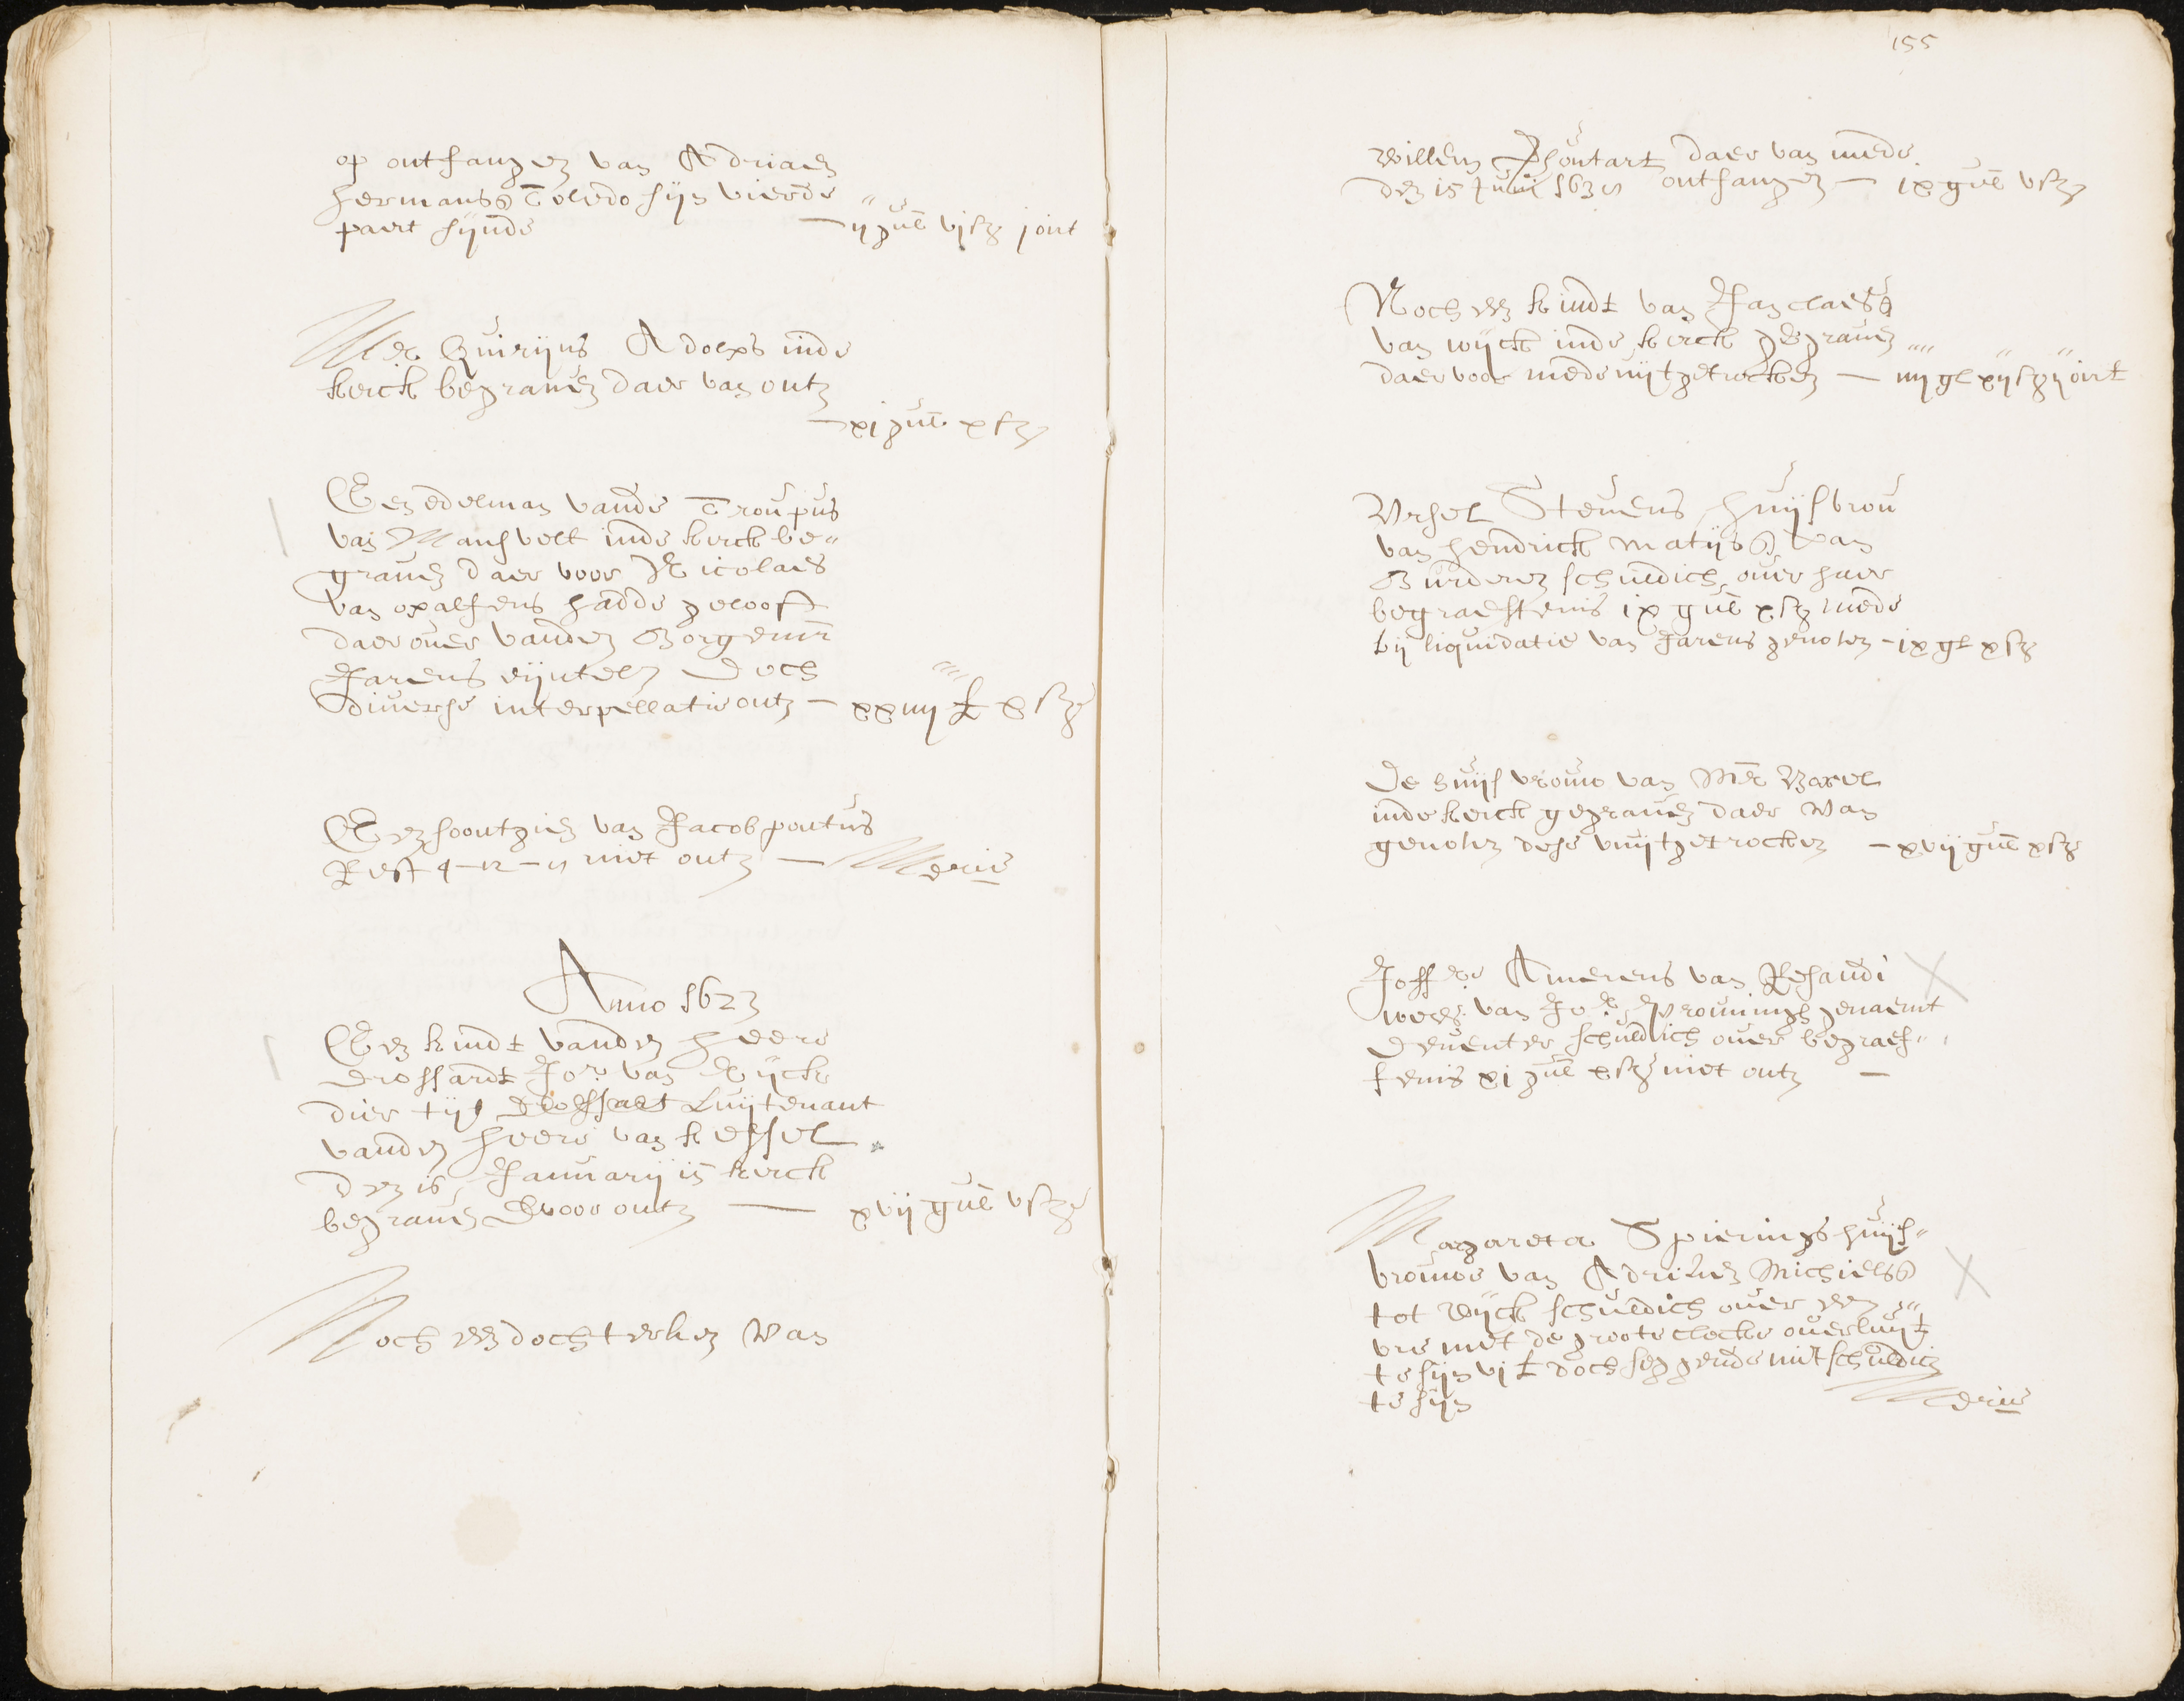 op ontfangen van Adriaen
Hermanss Toledo sijn vierde
paert sijnde — ij gul vj st j ort
Mer Quirijns Adolxs inde
kerck begraven daer van ontf
— xj gul x st
Een edelman vande Troupus
van Mansvelt inde kerck be"
graven daer voor Nicolaes
van opalfens hadde gelooft
daer over vanden Borgemr
Jarens eijntel doch
diverse interpellatie ontf — xxiiij £ x st
Een soontgien van Jacob pontus
Rest 4-12-11 niet ontf — Merie
Anno 1623
Een kindt vanden heere
drossardt Jor van Eijck
dier tijt drossart Luijtenant
vanden heere van kessel
den 16 Januarij in kerck
begraven Dvoor ontf — xvij gul v st
Noch een dochterken van
155
willem daer van mede
den 15 Junij 163 ontfangen — ix gul v st
Noch een kindt van Jan claess
van wijck inde kerck gegraven
daer voor mede uijtgetrocken — iiij gl xij st ij ort
Ursel Stevens huijsvrou
van Hendrick matijss van
Burderen schuldich over haer
begraeffenis ix gul x st mede
bij liquidatie van Jarens genoten — ix gl x st
De huijsvrouw van Mr Barel
inde kerck gegraven daer van
genoten dese uuijtgetrocken — xvij gul x st
Joffre Amerens van Resandi
wede van Jor genaemt
Deventer schuldich over begraef"
fenis xj gul x st niet ontf —
Margareta Spierings huijs"
vrouwe van Adriaen Michielss
tot Wijck schuldich over een
ure met de groote clocke overluijt
te sijn vj £ doch seggende niet schuldich
te sijn Merie